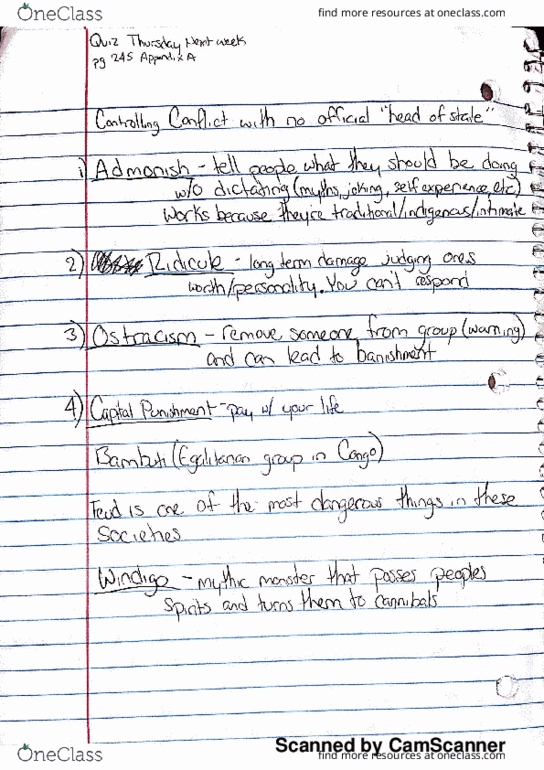 OneClass
find more resources at oneclass.com
Quiz Thursday Next week
pg 245 Appendix A
Controlling Conflict with no official "head of state"
1) Admonish - tell people what they should be doing
w/o dictating (myths, joking, self experience, etc)
Works because they're traditional/indigenous/intimate
2) Ridicule - long term damage judging ones
worth/personality. You can't respond
3) Ostracism - remove someone from group (warning)
and can lead to banishment
4) Capital Punishment - pay w/ your life
Bambuti (Egalitarian group in Congo)
Feud is one of the most dangerous things in these
Societies
Windigo - mythic monster that posses peoples
spirits and turns them to cannibals
Scanned by CamScanner
OneClass
find more resources at oneclass.com